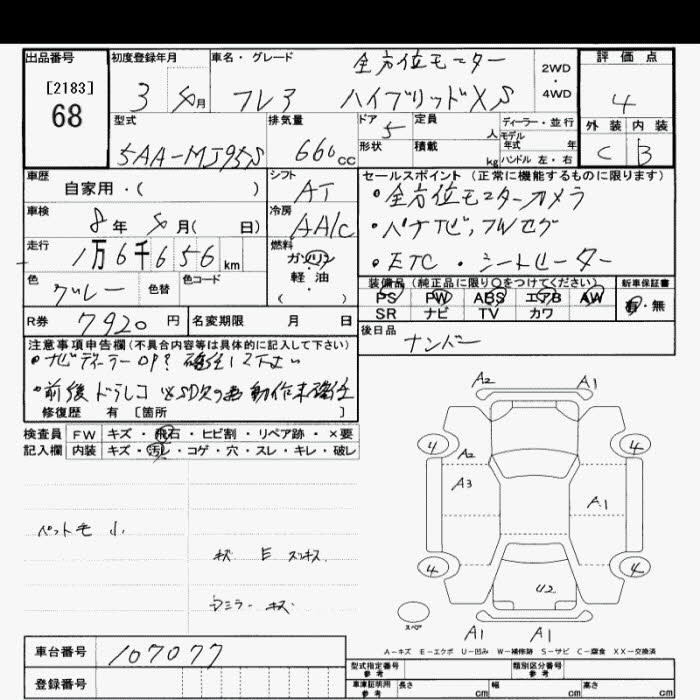 出品番号 初度登録年月 車名・グレード 全方位モニター 2WD・4WD 評価点
[2183] 68 3 年 月 フレア ハイブリッドXS 4
型式 排気量 ドア 5 定員 人 ディーラー・並行 外装 内装
5AA-MJ95S 660 CC 形状 積載 kg モデル年式 年 ハンドル 左・右 C B
車歴 シフト セールスポイント (正常に機能するものに限ります)
自家用・( ) AT ・全方位モニターカメラ
車検 冷房 ・パナナビ, フルセグ
8年 月( 日) AA/C
走行 燃料 ・ETC ・シートヒーター
1万6千656 km ガソリン
色 色替 色コード 軽・油 装備品 (純正品に限り○をつけてください) 新車保証書
グレー ( ) PS PW ABS エアB AW 有・無
SR ナビ TV カワ
R券 7920 円 名変期限 月 日 後日品
ナンバー
注意事項申告欄(不具合内容等は具体的に記入して下さい)
・ナビディーラーOP? 確認して下さい
・前後ドラレコ SD欠の為動作未確認
修復歴 有 [箇所 ]
検査員 FW キズ・飛石・ヒビ割・リペア跡・×要
記入欄 内装 キズ・汚レ・コゲ・穴・スレ・キレ・破レ
A2 A1
4 4
A2
A3 A1
ペット毛 小
キズ E
4 4
U2
ミラー キズ
スペア
A1 A1
A-キズ E-エクボ U-凹み W-補修跡 S-サビ C-腐食 XX-交換済
車台番号 107077 型式指定番号 参考 類別区分番号 参考
登録番号 車庫証明用 参考 長さ cm 幅 cm 高さ cm